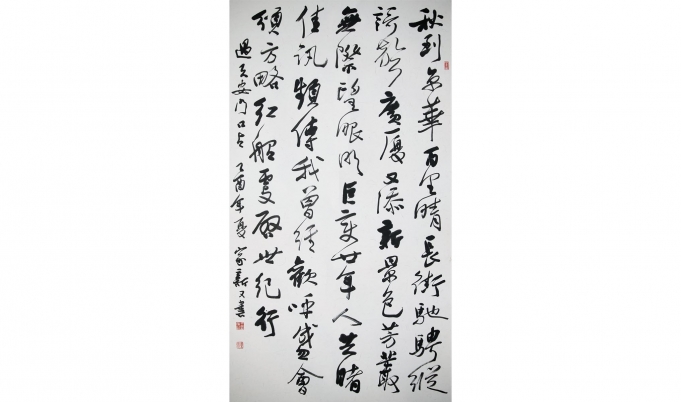 秋到京華百里晴長街馳騁縱
廣廈又添新景色芳叢
無際望眼明巨變廿年人共睹
佳訊頻傳我曾經歡呼盛會
頌方略紅船啟世紀行
過天安门口占 乙酉年夏 家新又書